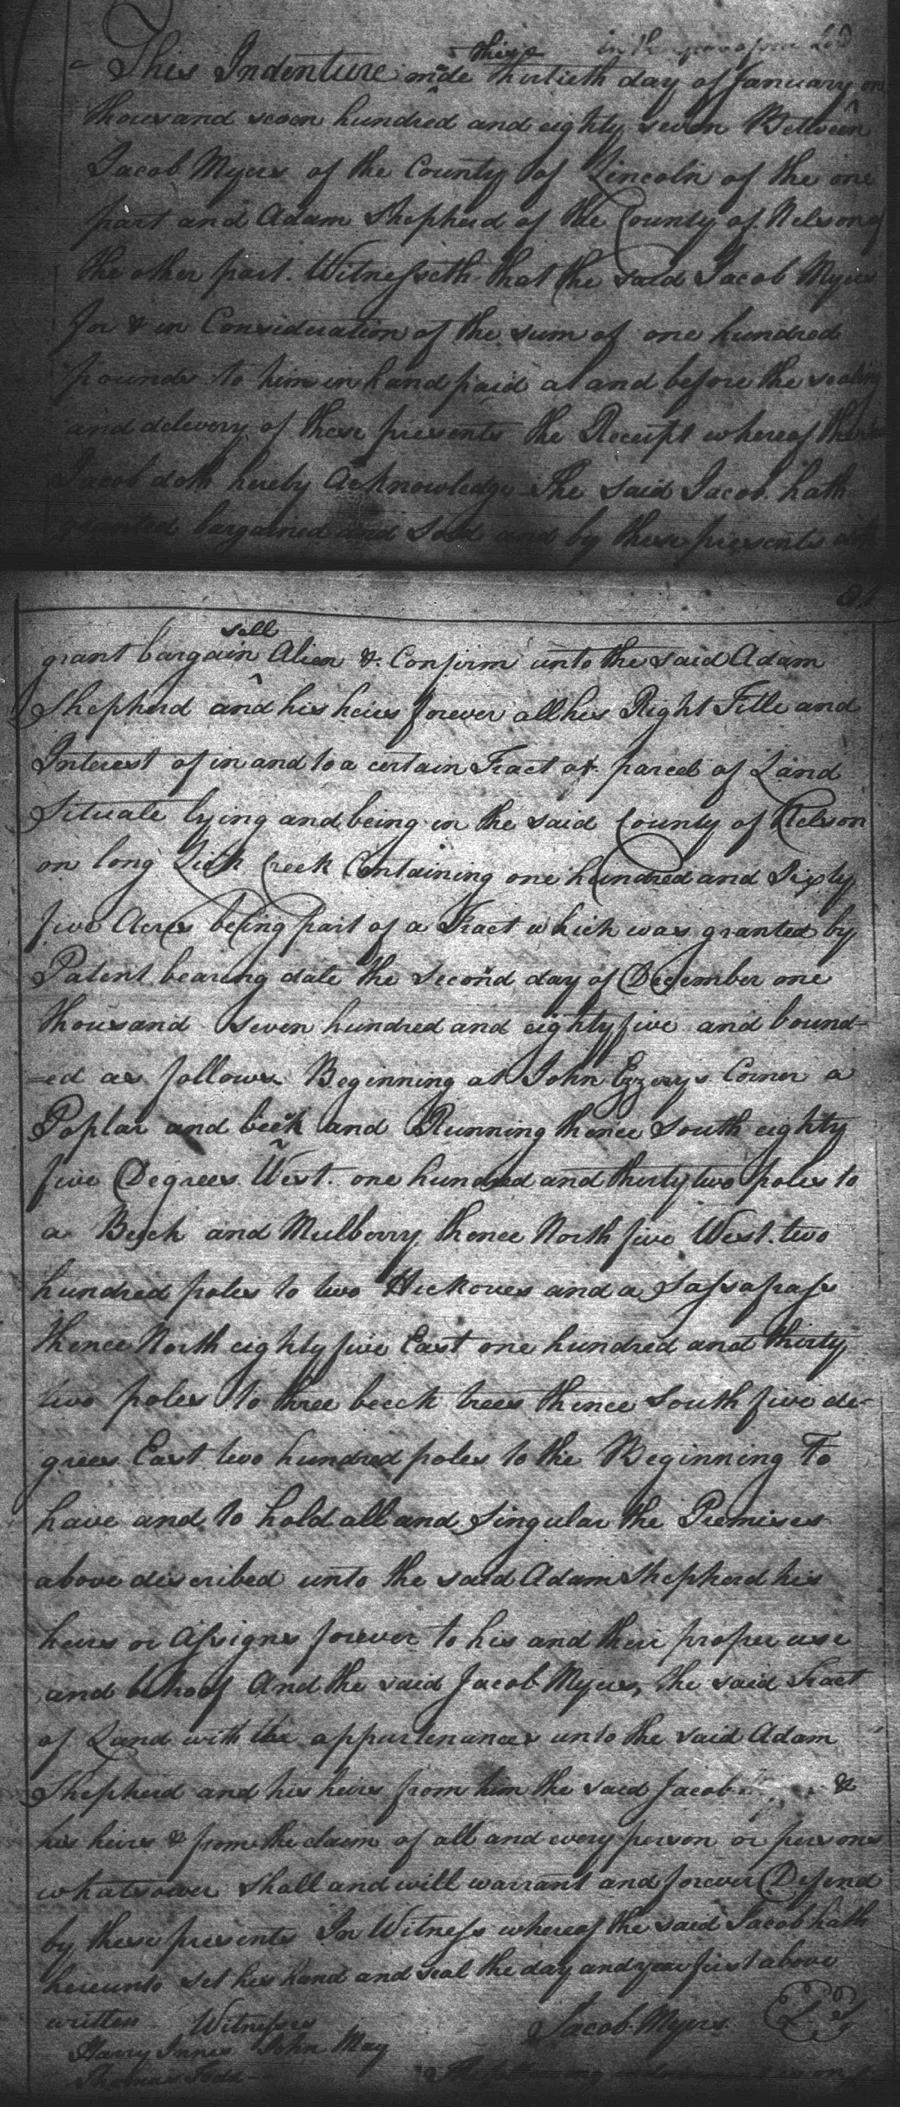 this in the year of our Lord
This Indenture made thirtieth day of January one
thousand seven hundred and eighty seven Between
Jacob Myers of the County of Lincoln of the one
part and Adam Shepherd of the County of Nelson of
the other part. Witnesseth that the said Jacob Myers
for & in Consideration of the sum of one hundred
pounds to him in hand paid at and before the sealing
and delivery of these presents the Receipt whereof the
Jacob doth hereby Acknowledge The said Jacob hath
granted bargained and Sold and by these presents doth
sell
grant bargain Alien & Confirm unto the said Adam
Shepherd and his heirs forever all his Right Title and
Interest of in and to a certain Tract or parcel of Land
Situate lying and being in the said County of Nelson
on long Lick Creek Containing one hundred and Sixty
five Acres being part of a Tract which was granted by
Patent bearing date the second day of December one
thousand seven hundred and eighty five and bound-
-ed as follows Beginning at John Ezzerys Corner a
Poplar and beech and Running thence South eighty
five Degrees West. one hundred and thirty two poles to
a Beech and Mulberry thence North five West. two
hundred poles to two Hickores and a Sassafrass
thence North eighty five East one hundred and thirty
two poles to three beech trees thence South five de-
grees East two hundred poles to the Beginning To
have and to hold all and Singular the Premises
above described unto the said Adam Shepherd his
heirs or Assigns forever to his and their proper use
and behoof And the said Jacob Myers, the said Tract
of Land with the appurtenances unto the said Adam
Shepherd and his heirs from him the said Jacob &
his heirs & from the claim of all and every person or persons
whatsoever shall and will warrant and forever Defend
by these presents In Witness whereof the said Jacob hath
hereunto set his hand and seal the day and year first above
written Witnesses Jacob Myers LS
Harry Innes John May
Thomas Todd